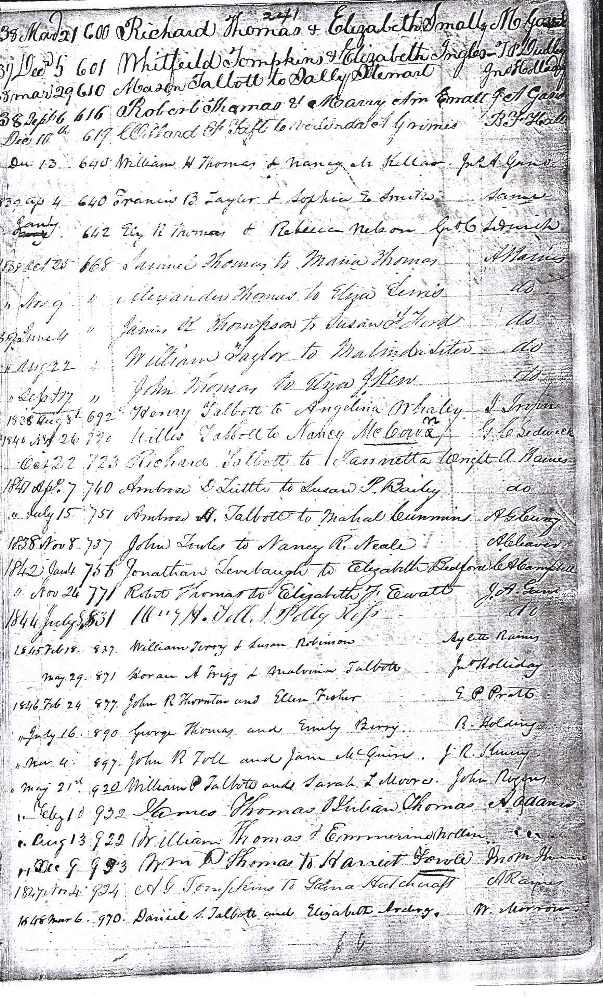 241
38 Mar 21 600 Richard Thomas & Elizabeth Small
37 Decr 5 601 Whitfeild Tompkins & Elizabeth Ingles T P Dudley
mar 29 610 Mason Talbott to Sally Stewart Jno Holladay
38 Sept 6 616 Robert Thomas & Marry Ann Small J A Gano
Dec 10th 619 Willard W Taft to Verlinda A Grimes B F Hall
Dec 13 645 William H Thomas & Nancy M Kellar Jn A Gano
39 ap 4 640 Francis B Taylor & Sophia E Smith same
642 Ely R Thomas & Rebecca Nelson Geo C Sedwick
1838 oct 25 668 Samuel Thomas to Maria Thomas A Raines
" Nov 9 " Alexander Thomas to Eliza Lewis do
June 4 " James H Thompson to Susan F Ford do
" Aug 22 " William Taylor to Malinda Siter do
" Sept 17 " John Thomas to Eliza J Kew do
1838 Aug 8t 692 Henry Talbott to Angelina Whaley J Irvin
1840 26 Willis Talbott to Nancy McCown G C Sedwick
Oct 22 723 Richard Talbott to Jannetta Wright A Raines
1841 Apl 7 740 Ambrose D Tuttle to Susan P Bailey do
" July 15 751 Ambrose H. Talbott to Mahal Cummins
1838 Nov 8 737 John Towles to Nancy R. Neale A Cleaver
1842 Jan 4 755 Jonathan Tevebaugh to Elizabeth Bedford C A Campbell
" Nov 24 771 Robt Thomas to Elizabeth F Ewalt J. A. Gano
1844 July 831 H. Kiss do
1845 Feb 18. 837. William Terry & Susan Robinson Aylette Rains
may 29. 871 Horace A Trigg & Malvina Talbott Jno Holliday
1846 Feb 24 877. John R Thornton and Ellen Fisher E P Pratt
" July 16 890 George Thomas and Emily Berry R. Holding
" Mar 4. 897. John R Toll and Jane McGuire. J. R.
" may 21st 920 William P Talbott and Sarah L Moore. John Rogers
" 10 932 James Thomas & Julian Thomas A Adams
" Aug 13 922 William Thomas & Emmerine
" Dec 9 953 Wm P Thomas to Harriet Towle
1847 Nov 4 954 A G Tompkins to Hutchcraft A Raines
1848 Mar 6. 970. Daniel S. Talbott and Elizabeth Ardery. W. Morrow